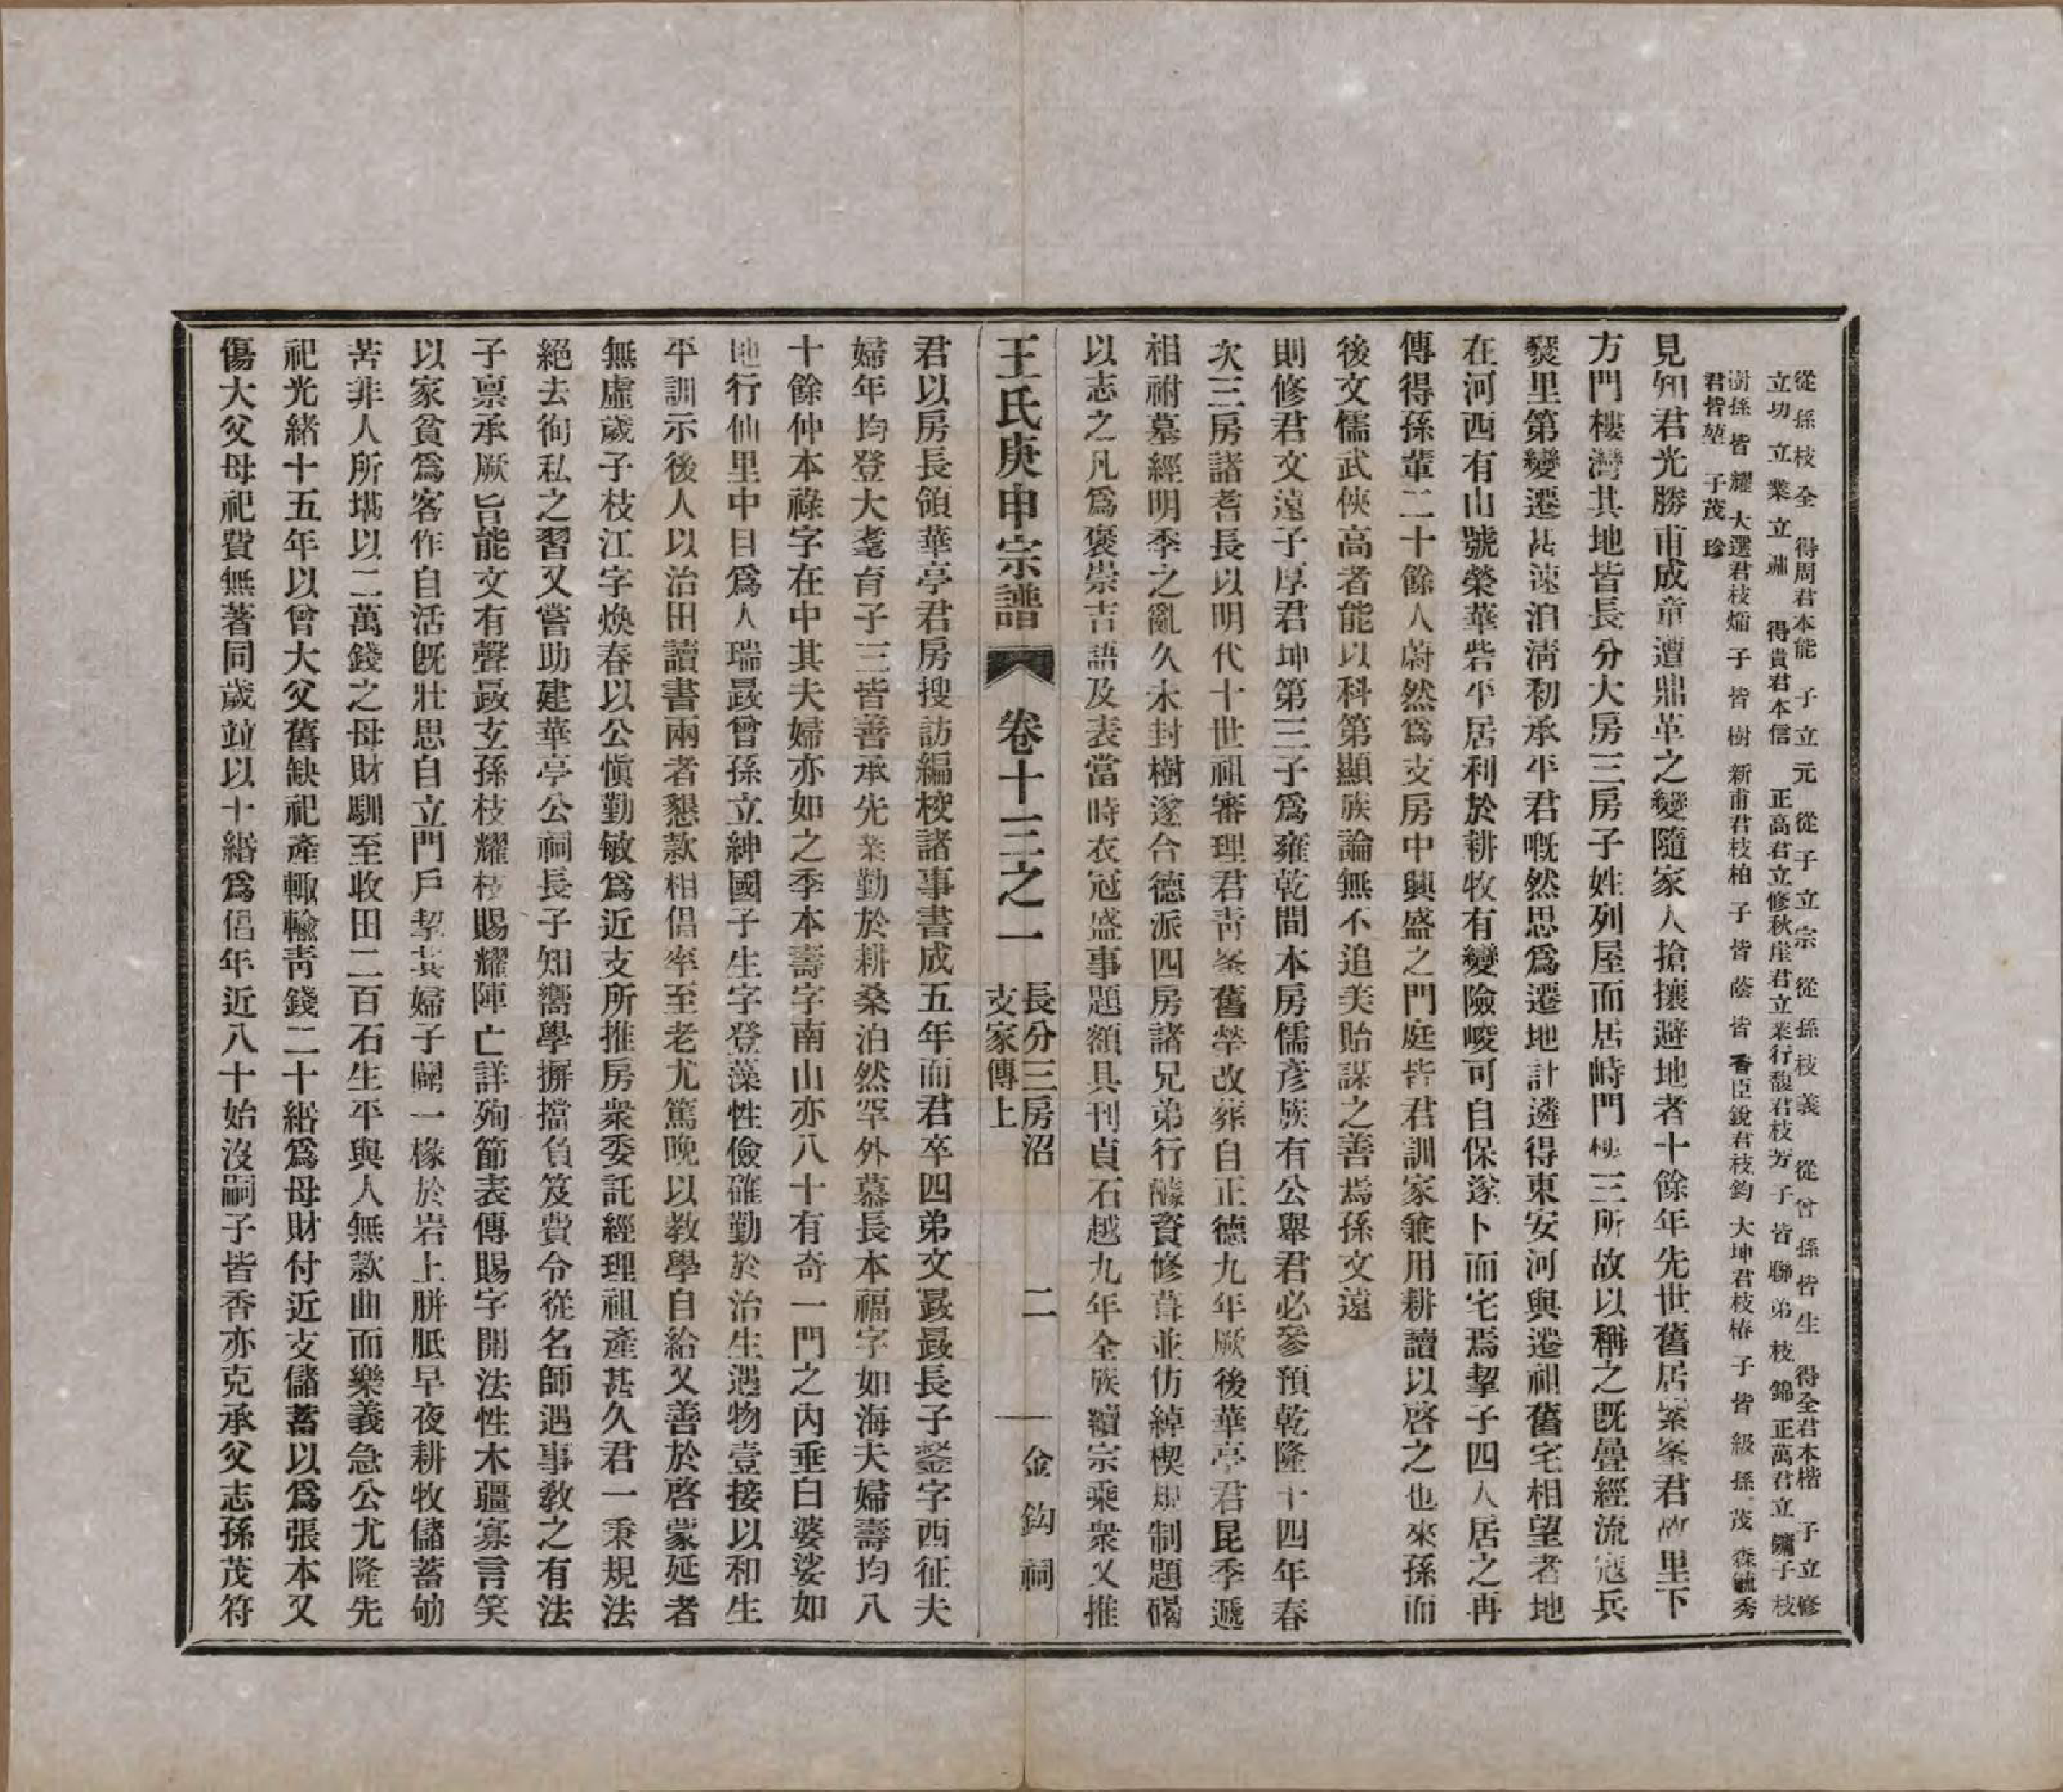 從孫枝全　得周君本能　子立元　從子立宗　從孫枝義　從曾孫皆生　得全君本楷　子立修
立功　立業　立　得貴君本信　正高君立修秋崖君立業行馥君枝芳子皆聯弟枝錦　正萬君立鏞子枝
樹孫皆耀　大選君枝　子皆樹　新甫君枝柏　子皆蔭　皆香臣銳君枝鈞　大坤君枝椿　子皆級　孫茂森毓秀
君皆堃　子茂珍
見知君光勝甫成童遭鼎革之變隨家人搶攘避地者十餘年先世舊居紫峯君故里下
方門樓灣其地皆長分大房三房子姓列屋而居峙門樓三所故以稱之既疊經流寇兵
燹里第變遷甚速洎淸初承平君嘅然思爲遷地計遴得東安河與遷祖舊宅相望者地
在河西有山號榮華砦平居利於耕牧有變險峻可自保遂卜而宅焉挈子四人居之再
傳得孫輩二十餘人蔚然爲支房中興盛之門庭皆君訓家兼用耕讀以啓之也來孫而
後文儒武俠高者能以科第顯族論無不追美貽謀之善焉孫文遠
則修君文遠子厚君坤第三子爲雍乾間本房儒彥族有公舉君必參預乾隆十四年春
次三房諸耆長以明代十世祖審理君靑峯舊塋改葬自正德九年厥後華亭君昆季遞
相祔墓經明季之亂久未封樹遂合德派四房諸兄弟行醵資修葺並仿綽楔規制題碣
以志之凡爲褒崇吉語及表當時衣冠盛事題額具刊貞石越九年全族續宗乘衆又推
王氏庚申宗譜　卷十三之一　長分三房沼
支家傳上　二　金鈎祠
君以房長領華亭君房搜訪編校諸事書成五年而君卒四弟文㝡㝡長子鎣字西征夫
婦年均登大耄育子三皆善承先業勤於耕桑泊然罕外慕長本福字如海夫婦壽均八
十餘仲本祿字在中其夫婦亦如之季本壽字南山亦八十有奇一門之內垂白婆娑如
地行仙里中目爲人瑞㝡曾孫立紳國子生字登藻性儉確勤於治生遇物壹接以和生
平訓示後人以治田讀書兩者懇款相倡率至老尤篤晩以教學自給又善於啓蒙延者
無虛歲子枝江字煥春以公愼勤敏爲近支所推房衆委託經理祖產甚久君一秉規法
絕去徇私之習又嘗助建華亭公祠長子知嚮學摒擋負笈費令從名師遇事敎之有法
子禀承厥旨能文有聲㝡玄孫枝耀枝賜耀陣亡詳殉節表傳賜字開法性木疆寡言笑
以家貧爲客作自活旣壯思自立門戶挈其婦子闢一椽於岩上胼胝早夜耕牧儲蓄劬
苦非人所堪以二萬錢之母財馴至收田二百石生平與人無款曲而樂義急公尤隆先
祀光緒十五年以曾大父舊缺祀產輙輸靑錢二十緡爲母財付近支儲蓄以爲張本又
傷大父母祀費無著同歲竝以十緡爲倡年近八十始沒嗣子皆香亦克承父志孫茂符